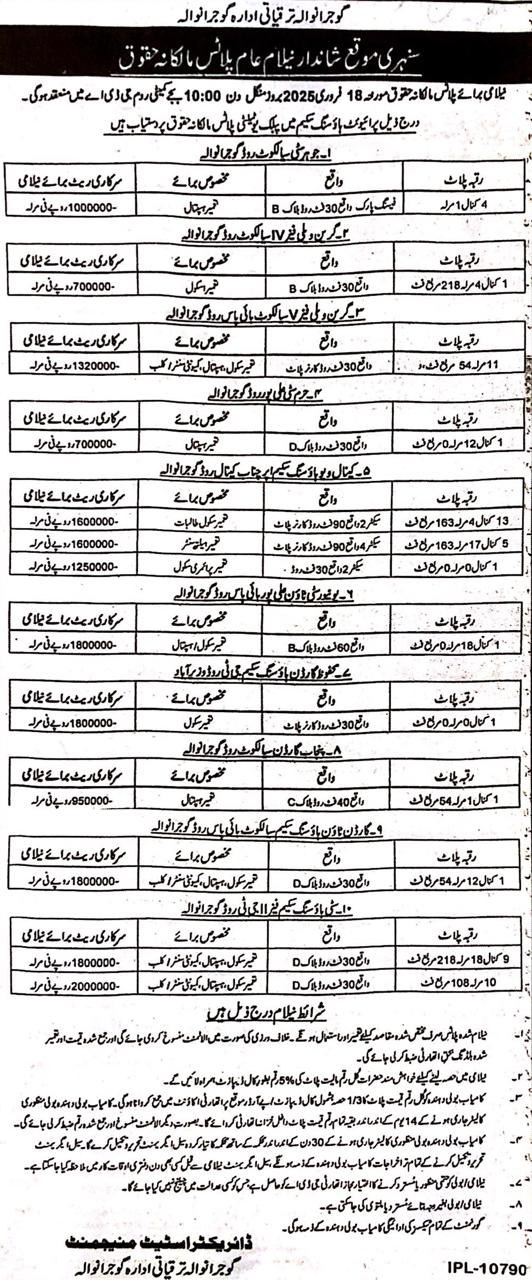 گوجرانوالہ ترقیاتی ادارہ گوجرانوالہ
سنہری موقع شاندار نیلام عام پلاٹس مالکانہ حقوق
نیلامی برائے پلاٹس مالکانہ حقوق مورخہ 18 فروری 2025 بروز منگل دن 10:00 بجے کمیٹی روم جی ڈی اے میں منعقد ہوگی۔
درج ذیل پرائیویٹ ہاؤسنگ سکیم میں پبلک یوٹیلٹی پلاٹس مالکانہ حقوق پر دستیاب ہیں
۱۔ جوہر سٹی سیالکوٹ روڈ گوجرانوالہ
رقبہ پلاٹ واقع مخصوص برائے سرکاری ریٹ برائے نیلامی
4 کنال 1 مرلہ فیسنگ پارک واقع 30 فٹ روڈ بلاک B تعمیر ہسپتال 1000000/- روپے فی مرلہ
۲۔ گرین ویلی فیز IV سیالکوٹ روڈ گوجرانوالہ
رقبہ پلاٹ واقع مخصوص برائے سرکاری ریٹ برائے نیلامی
1 کنال 4 مرلہ 218 مربع فٹ واقع 30 فٹ روڈ بلاک B تعمیر سکول 700000/- روپے فی مرلہ
۳۔ گرین ویلی فیز V سیالکوٹ بائی پاس روڈ گوجرانوالہ
رقبہ پلاٹ واقع مخصوص برائے سرکاری ریٹ برائے نیلامی
11 مرلہ 54 مربع فٹ واقع 30 فٹ روڈ کارنر پلاٹ تعمیر سکول، ہسپتال، کمیونٹی سنٹر / کلب 1320000/- روپے فی مرلہ
۴۔ حرم سٹی علی پور روڈ گوجرانوالہ
رقبہ پلاٹ واقع مخصوص برائے سرکاری ریٹ برائے نیلامی
1 کنال 12 مرلہ 0 مربع فٹ واقع 30 فٹ روڈ بلاک D تعمیر ہسپتال 700000/- روپے فی مرلہ
۵۔ کینال ویو ہاؤسنگ سکیم اپر چناب کینال روڈ گوجرانوالہ
رقبہ پلاٹ واقع مخصوص برائے سرکاری ریٹ برائے نیلامی
13 کنال 4 مرلہ 163 مربع فٹ سیکٹر 2 واقع 90 فٹ روڈ کارنر پلاٹ تعمیر سکول طالبات 1600000/- روپے فی مرلہ
5 کنال 17 مرلہ 163 مربع فٹ سیکٹر 4 واقع 90 فٹ روڈ کارنر پلاٹ تعمیر ہیلتھ سنٹر 1600000/- روپے فی مرلہ
1 کنال 0 مرلہ 0 مربع فٹ سیکٹر 2 واقع 30 فٹ روڈ تعمیر پرائمری سکول 1250000/- روپے فی مرلہ
۶۔ یونیورسٹی ٹاؤن علی پور بائی پاس روڈ گوجرانوالہ
رقبہ پلاٹ واقع مخصوص برائے سرکاری ریٹ برائے نیلامی
1 کنال 18 مرلہ 0 مربع فٹ واقع 60 فٹ روڈ بلاک B تعمیر سکول / ہسپتال 1800000/- روپے فی مرلہ
۷۔ محفوظ گارڈن ہاؤسنگ سکیم جی ٹی روڈ وزیرآباد
رقبہ پلاٹ واقع مخصوص برائے سرکاری ریٹ برائے نیلامی
1 کنال 0 مرلہ 0 مربع فٹ واقع 30 فٹ روڈ کارنر پلاٹ تعمیر سکول 1800000/- روپے فی مرلہ
۸۔ پنجاب گارڈن سیالکوٹ روڈ گوجرانوالہ
رقبہ پلاٹ واقع مخصوص برائے سرکاری ریٹ برائے نیلامی
1 کنال 1 مرلہ 54 مربع فٹ واقع 40 فٹ روڈ بلاک C تعمیر ہسپتال 950000/- روپے فی مرلہ
۹۔ گارڈن ٹاؤن ہاؤسنگ سکیم سیالکوٹ بائی پاس روڈ گوجرانوالہ
رقبہ پلاٹ واقع مخصوص برائے سرکاری ریٹ برائے نیلامی
1 کنال 12 مرلہ 54 مربع فٹ واقع 30 فٹ روڈ بلاک D تعمیر سکول، ہسپتال، کمیونٹی سنٹر / کلب 1800000/- روپے فی مرلہ
۱۰۔ سٹی ہاؤسنگ سکیم فیز II جی ٹی روڈ گوجرانوالہ
رقبہ پلاٹ واقع مخصوص برائے سرکاری ریٹ برائے نیلامی
9 کنال 18 مرلہ 218 مربع فٹ واقع 30 فٹ روڈ بلاک D تعمیر سکول، ہسپتال، کمیونٹی سنٹر / کلب 1800000/- روپے فی مرلہ
10 مرلہ 108 مربع فٹ واقع 30 فٹ روڈ بلاک D تعمیر سکول، ہسپتال، کمیونٹی سنٹر / کلب 2000000/- روپے فی مرلہ
شرائط نیلام درج ذیل ہیں
۱۔ نیلام شدہ پلاٹس صرف مختص شدہ مقاصد کیلئے تعمیر اور استعمال ہونگے۔ خلاف ورزی کی صورت میں الاٹمنٹ منسوخ کر دی جائے گی اور جمع شدہ قیمت اور تعمیر
شدہ بلڈنگ بحق اتھارٹی ضبط کر لی جائے گی۔
۲۔ نیلامی میں حصہ لینے کیلئے خواہش مند حضرات کل رقم مالیت پلاٹ کی 5% رقم بطور کال ڈیپازٹ ہمراہ لائیں گے۔
۳۔ کامیاب بولی دہندہ کو کل رقم قیمت پلاٹ کا 1/3 حصہ بشمول کال ڈیپازٹ موقع پر اتھارٹی اکاؤنٹ میں جمع کروانا ہوگی۔ کامیاب بولی دہندہ بولی منظوری
کا لیٹر جاری ہونے کے 14 یوم کے اندر اندر بقیہ تمام رقم قیمت پلاٹ داخل خزانہ اتھارٹی کرائے گا۔ بصورت دیگر الاٹمنٹ منسوخ اور جمع شدہ رقم ضبط کر لی جائے گی۔
۴۔ کامیاب بولی دہندہ بولی منظوری کا لیٹر جاری ہونے کے 30 دن کے اندر اندر محکمہ کے ساتھ محکمہ کا تیار کردہ سیل ایگریمنٹ تحریر و تکمیل کرے گا۔ سیل ایگریمنٹ
تحریر و تکمیل کرنے کے تمام تر اخراجات کامیاب بولی دہندہ کے ذمہ ہونگے۔ سیل ایگریمنٹ نیلامی سے قبل کسی بھی دن دفتری اوقات کار میں ملاحظہ کیا جا سکتا ہے۔
۷۔ نیلامی / بولی کو حتمی منظور یا مسترد کرنے کا اختیار مجاز اتھارٹی جی ڈی اے کو حاصل ہے جس کو کسی عدالت میں چیلنج نہیں کیا جائے گا۔
۸۔ نیلامی / بولی بغیر وجہ بتائے مسترد یا ملتوی کی جا سکتی ہے۔
۹۔ گورنمنٹ کے تمام ٹیکسز کی ادائیگی کامیاب بولی دہندہ کے ذمہ ہوگی۔
ڈائریکٹر اسٹیٹ مینجمنٹ
گوجرانوالہ ترقیاتی ادارہ گوجرانوالہ
IPL-10790